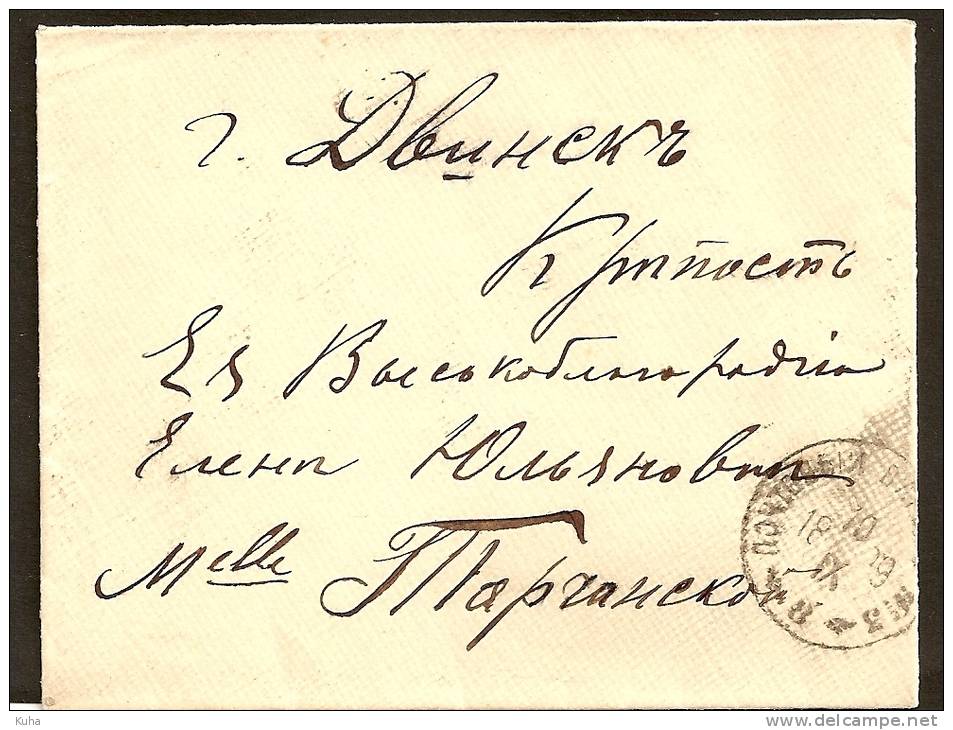 г. Двинскъ
Крѣпость
Ея Высокоблагородію
Еленѣ Юльяновнѣ
Melle Тарчанской
ПОЧТОВЫЙ
18 10
IX 99
Kuha
www.delcampe.net